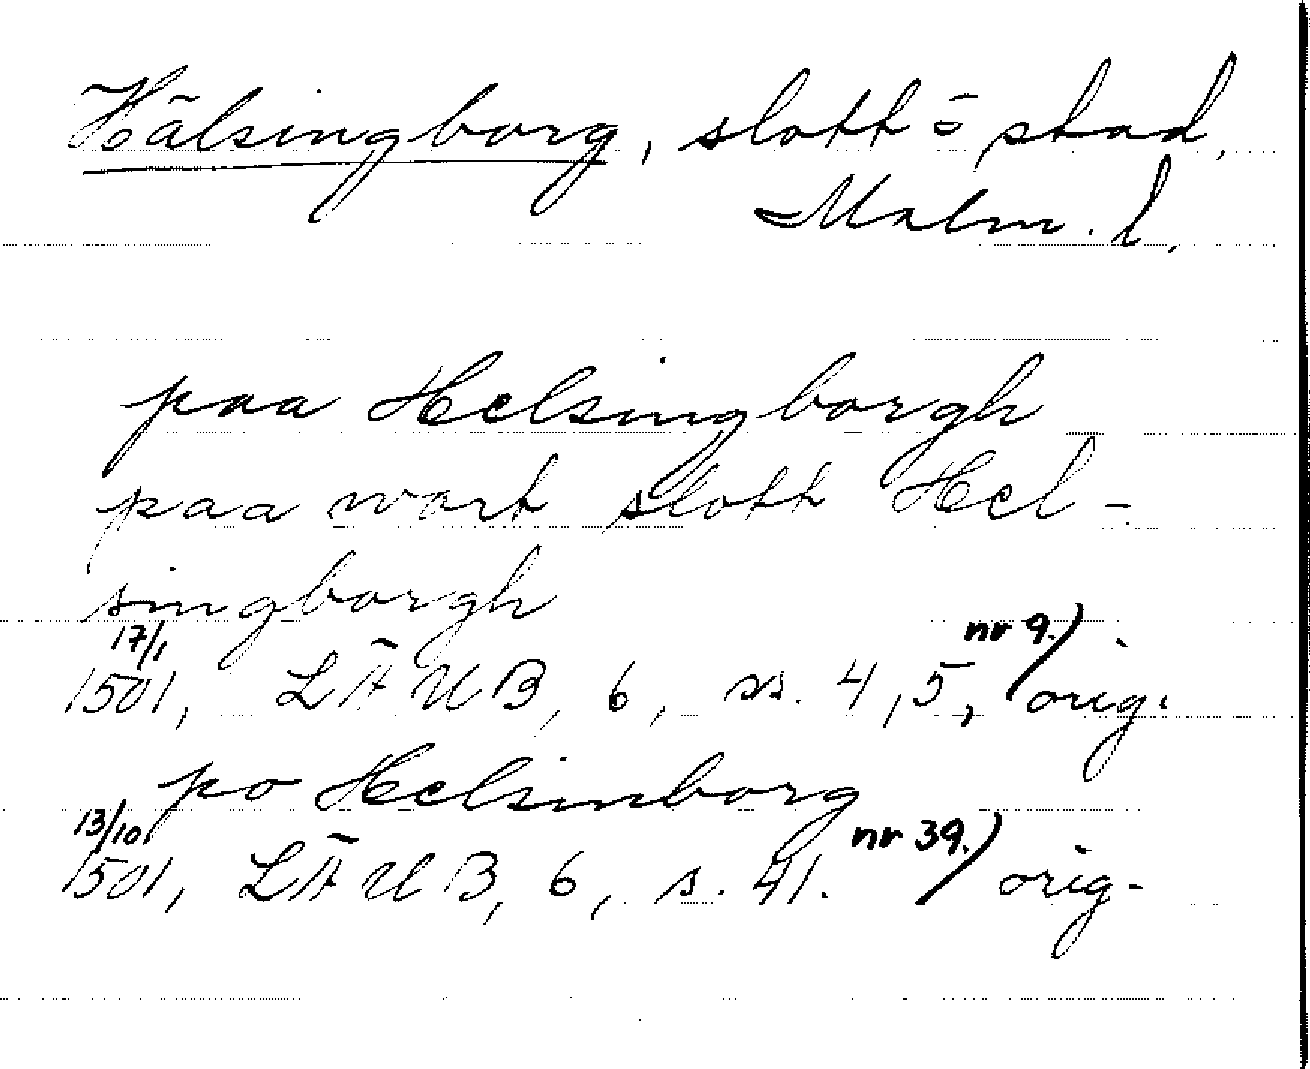 Hälsingborg, slott o stad,
Malm. l.
paa Helsingborgh
paa wort slott Hel-
singborgh
17/1 nr 9.)
1501, LÄUB, 6, ss. 4, 5, orig.
po Helsinborg
13/10 nr 39.)
1501, LÄUB, 6, s. 41. orig.